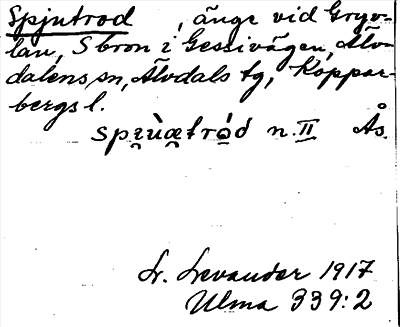 Spjutrod , änge vid Gryv-
lan, S bron i Gessivägen, Älv-
dalens sn, Älvdals tg, Koppar-
bergs l.
n. II Ås.
L. Levander 1917
Ulma 339:2